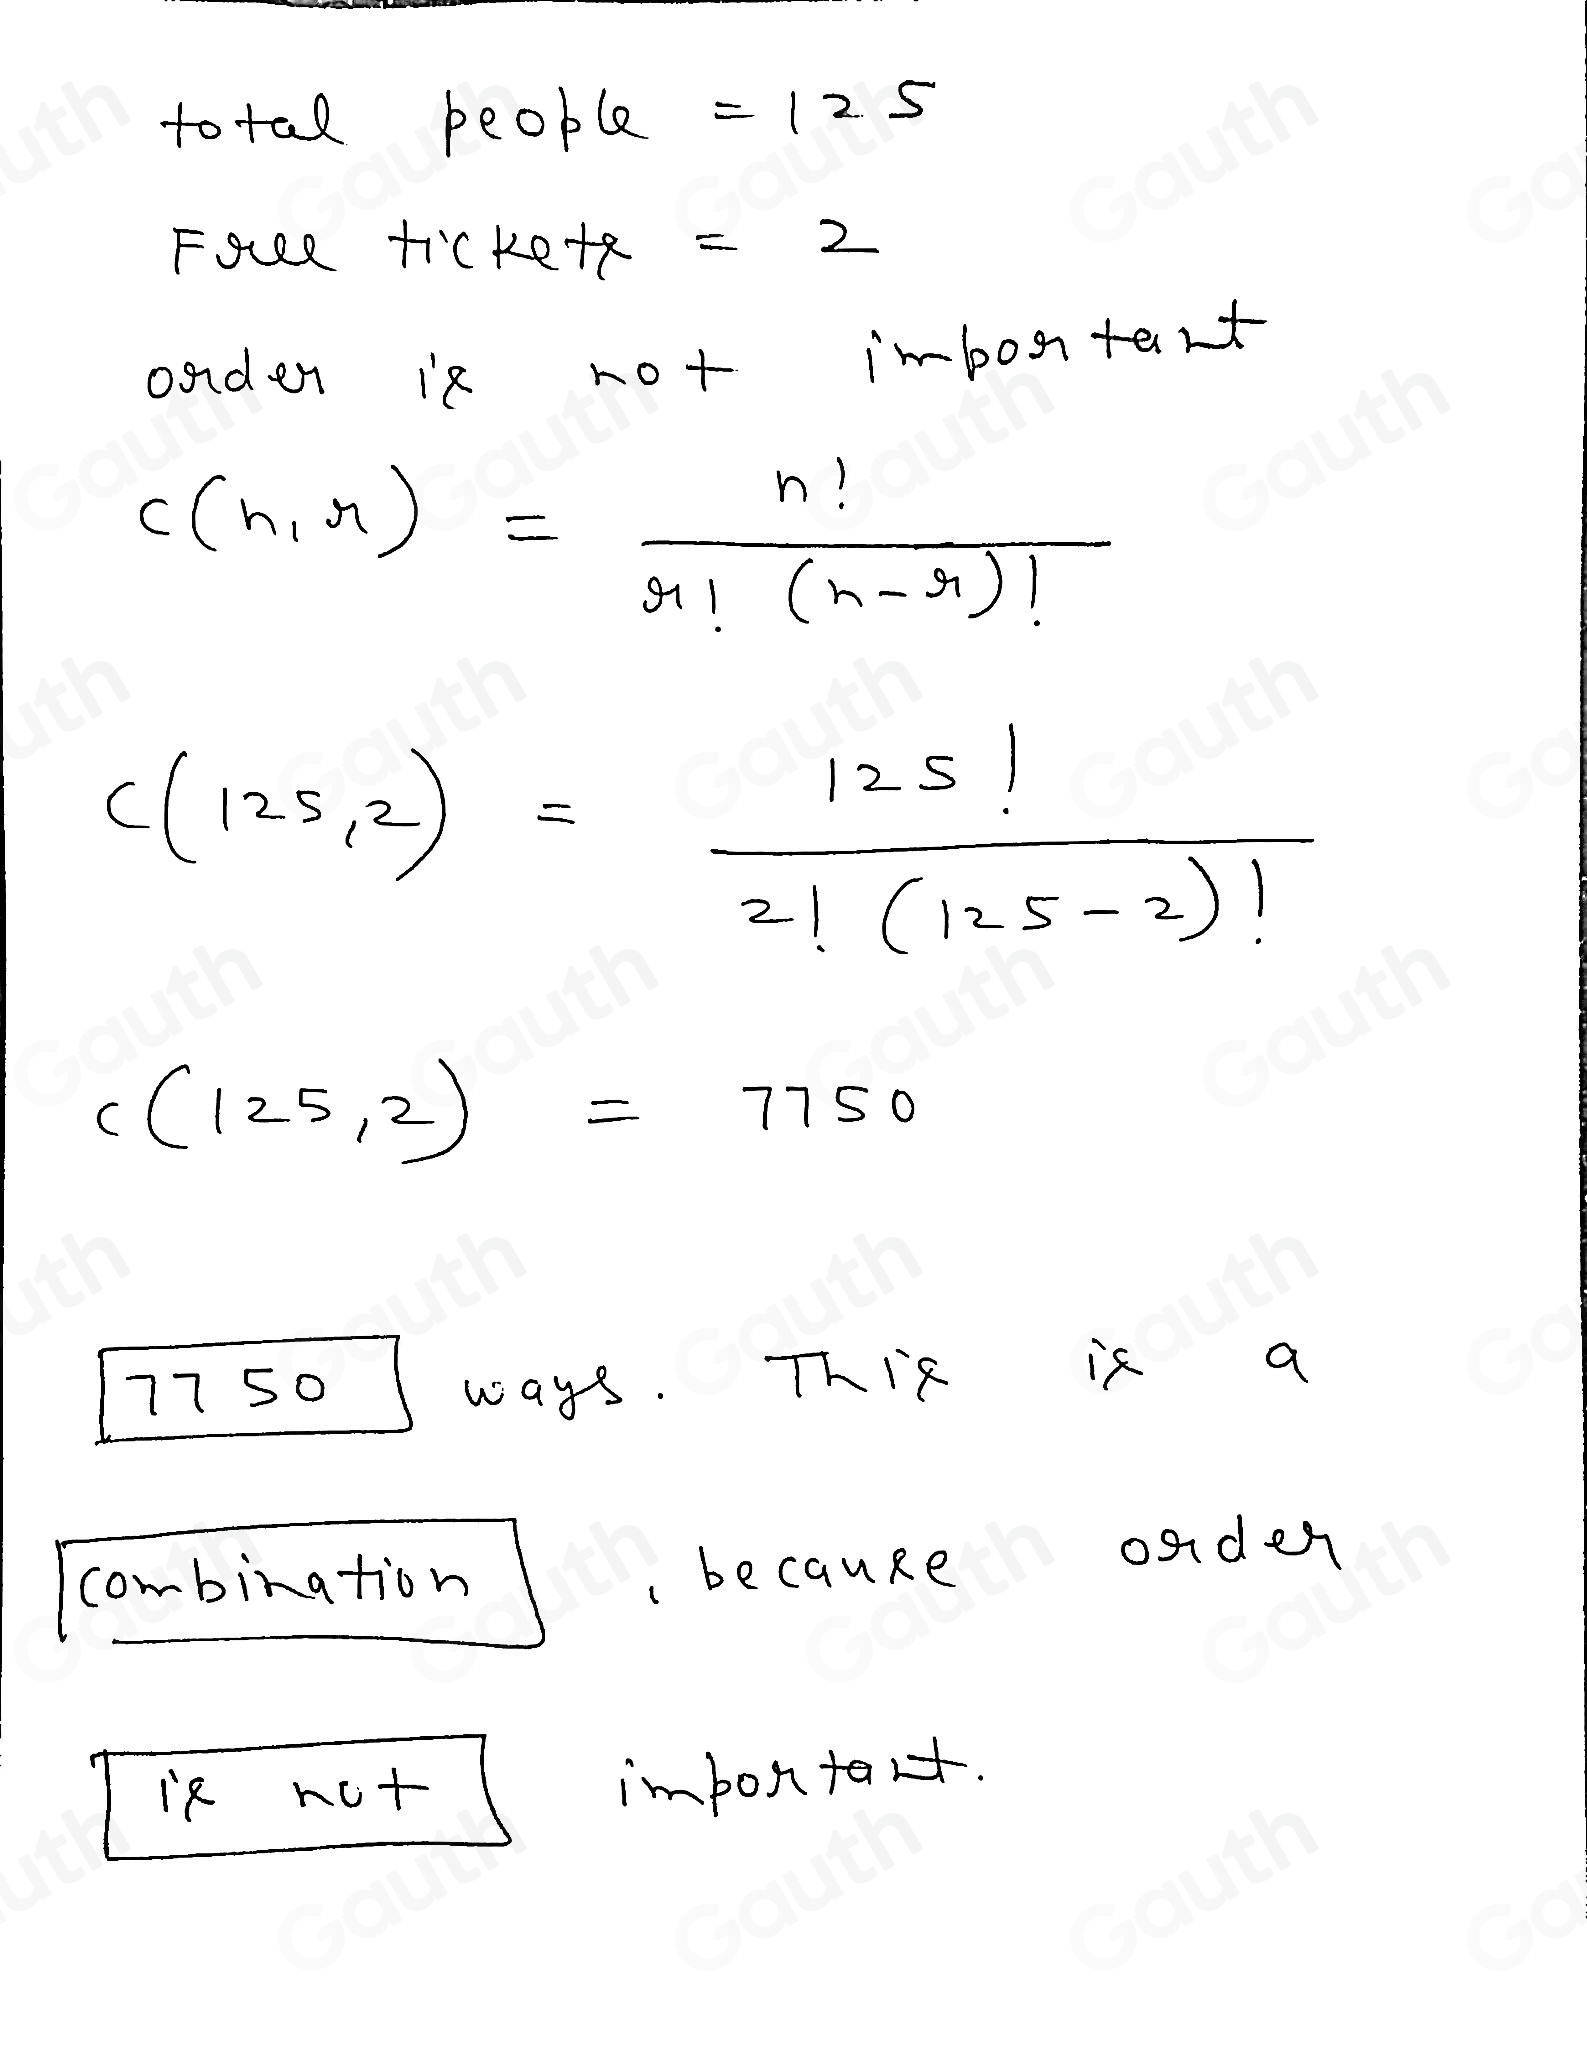 total people = 125
Free tickets = 2
order is not important
C(n,r) = n! / r! (n-r)!
C(125,2) = 125! / 2! (125-2)!
C(125,2) = 7750
7750 ways. This is a
combination, because order
is not important.